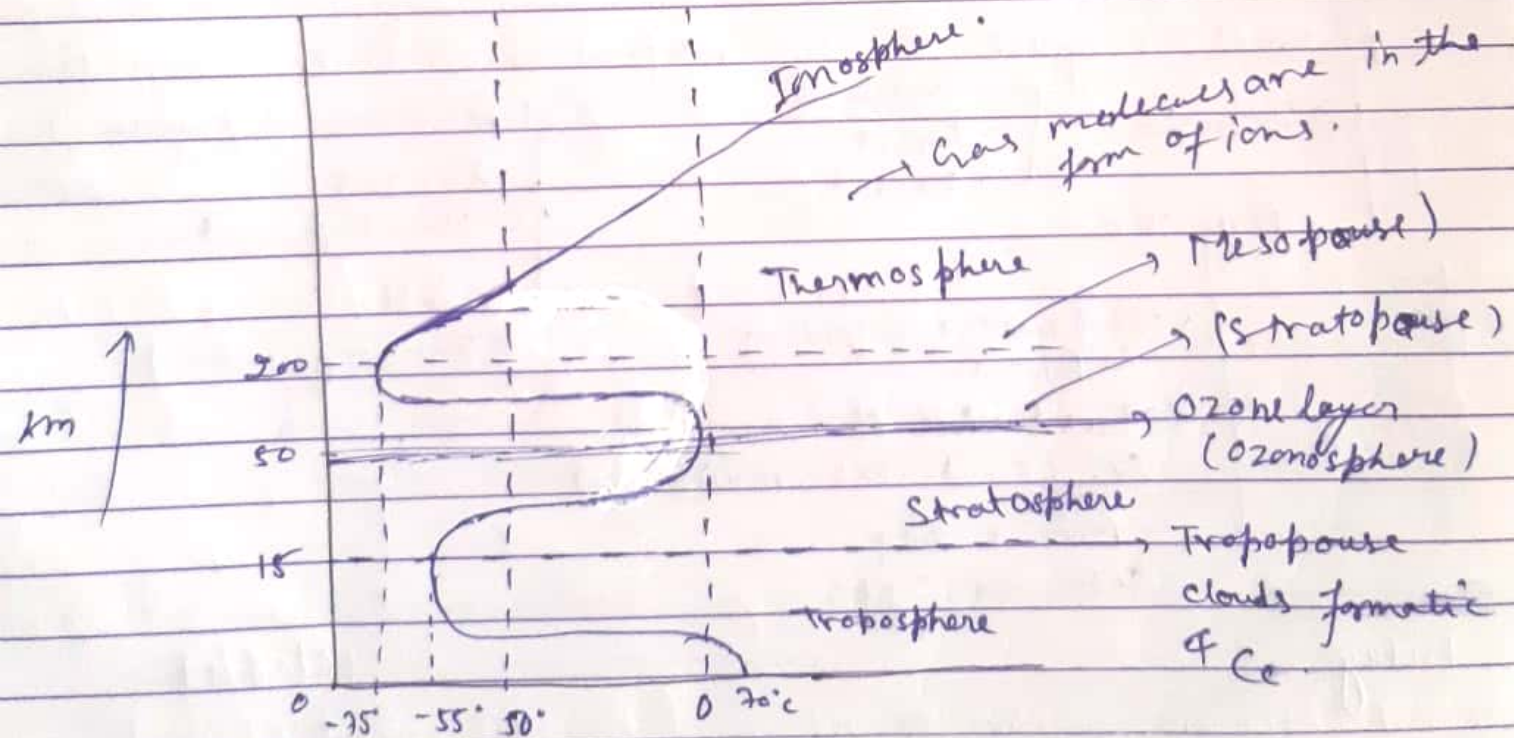 Ionosphere.
→ Gas molecules are in the
form of ions.
Thermosphere
Mesopause)
(Stratopause)
km
50
Ozone layer
(Ozonosphere)
Stratosphere
15
Tropopouse
clouds formatic
Troposphere
& Ce.
0 -75° -55° 50° 0 70°c